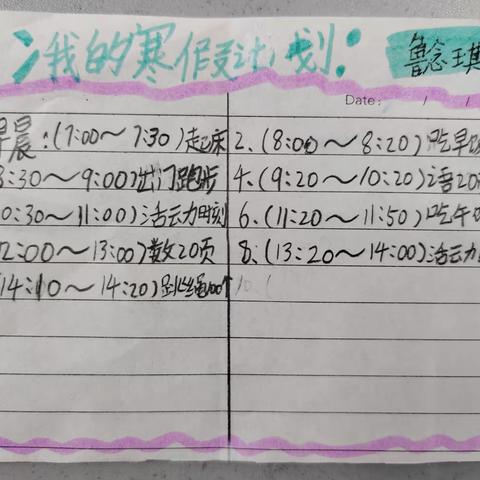 我的寒假计划:
鲁念琪
Date: / /
早晨:(7:00～7:30)起床 2、(8:00～8:20)吃早
8:30～9:00)出门跑步 4、(9:20～10:20)语20
0:30～11:00)活动时刻 6、(11:20～11:50)吃午
12:00～13:00)数20页 8、(13:20～14:00)活动
(14:10～14:20)跳绳100个 10、(